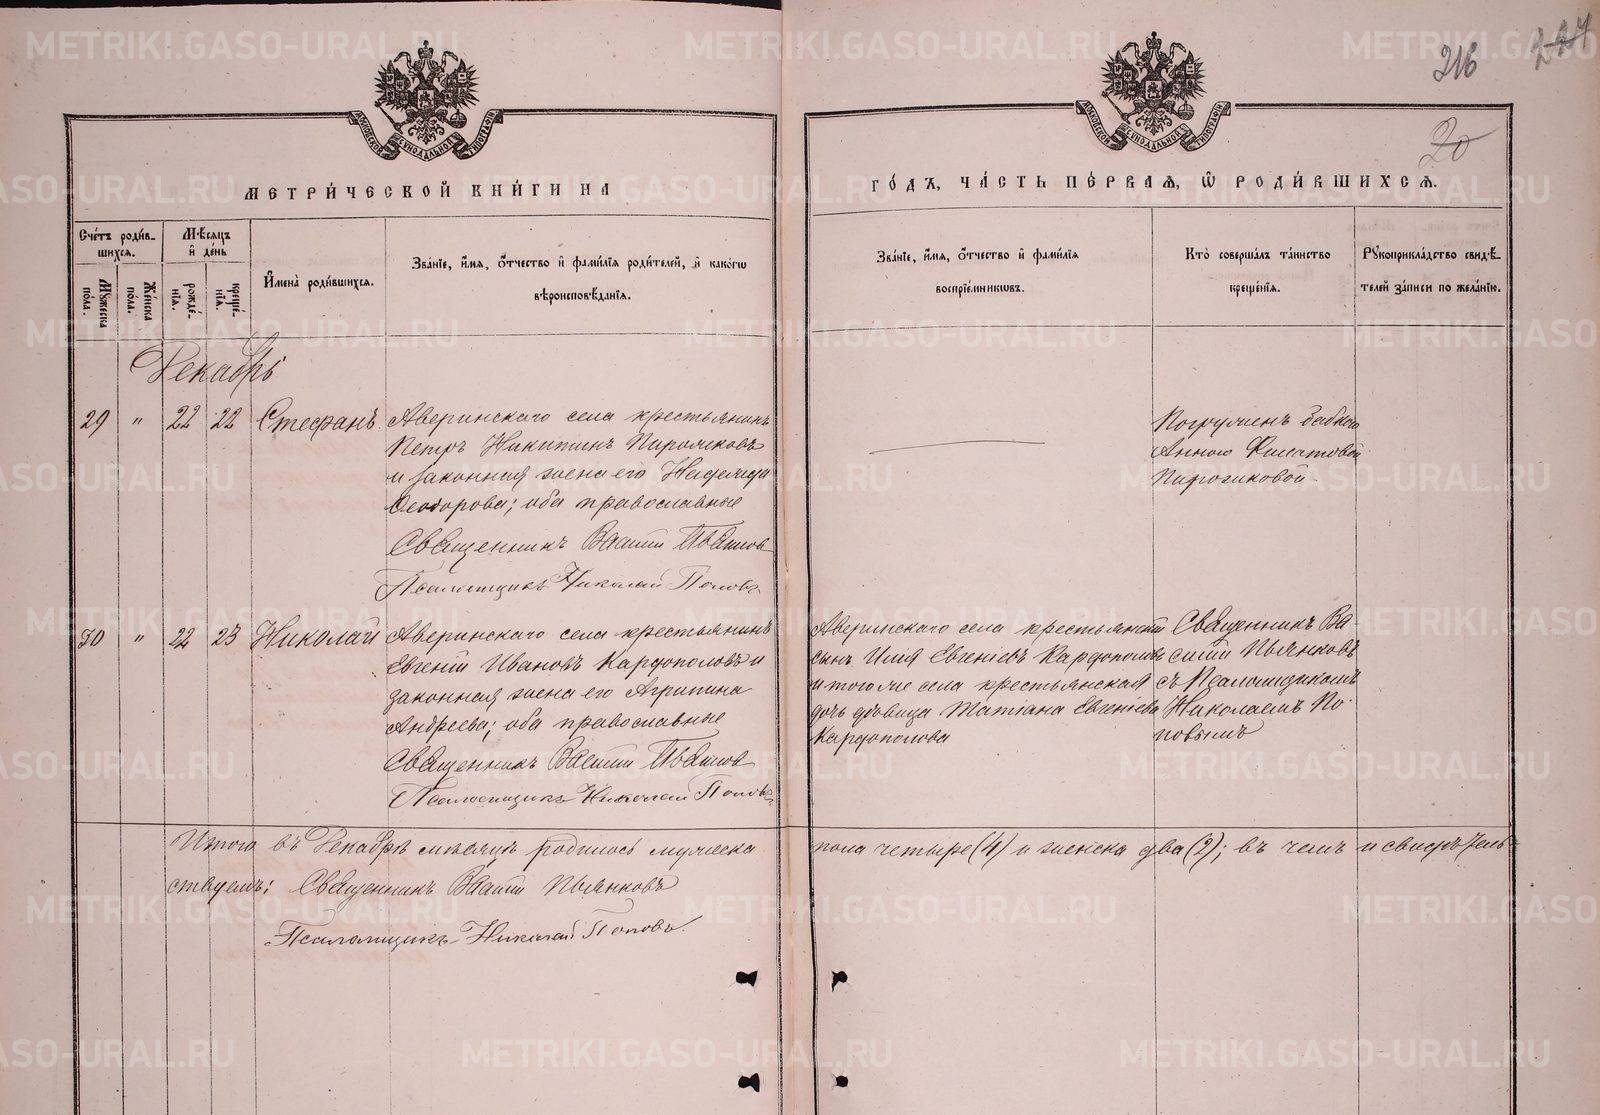 METRIKI.GASO-URAL.RU
216
227
20
МОСКОВСКОЙ СѴНОДАЛЬНОЙ ТИПОГРАФІИ
МОСКОВСКОЙ СѴНОДАЛЬНОЙ ТИПОГРАФІИ
МЕТРИ́ЧЕСКОЙ КНИ́ГИ НА
ГО́ДЪ, ЧА́СТЬ ПЕ́РВАѦ, Ѿ РОДИ́ВШИХСѦ.
Сче́тъ роди́в-
шихсѧ.
Мꙋ́жеска по́ла.
Же́нска по́ла.
Мѣ́сѧцъ
и҆ де́нь
рожде́-
нїѧ.
креще́-
нїѧ.
И҆мена̀ роди́вшихсѧ.
Зва́нїе, и҆́мѧ, ѻ҆́тчество и҆ фами́лїѧ роди́телей, и҆ како́гѡ
вѣроисповѣ́данїѧ.
Зва́нїе, и҆́мѧ, ѻ҆́тчество и҆ фами́лїѧ
воспрїе́мникѡвъ.
Кто̀ соверша́лъ та́инство
креще́нїѧ.
Рꙋкоприкла́дство свидѣ́-
телей за́писи по жела́нїю.
Декабрь
29 " 22 22 Стефанъ
Аверинскаго села крестьянинъ
Петръ Никитинъ Пирожковъ
и законная жена его Надежда
Ѳеодорова; оба православные
Священникъ Василій Пьянков
Псаломщикъ Николай Поповъ
Погружен бабкою
Анною Филатовой
Пирожковой.
30 " 22 23 Николай
Аверинскаго села крестьянинъ
Евгеній Ивановъ Кардополовъ и
законная жена его Агрипина
Андреева; оба православные
Священникъ Василій Пьянков
Псаломщикъ Николай Поповъ
Аверинскаго села крестьянскій
сынъ Илія Евгеніевъ Кардополовъ
и того же села крестьянская
дочь дѣвица Татіана Евгеніева
Кардополова
Священникъ Ва-
силій Пьянковъ
съ Псаломщикомъ
Николаемъ По-
повымъ
Итого въ Декабрѣ мѣсяцѣ родилось мужеска
пола четыре (4) и женска два (2); въ чемъ и свидѣтель-
ствуемъ: Священникъ Василій Пьянковъ
Псаломщикъ Николай Поповъ.